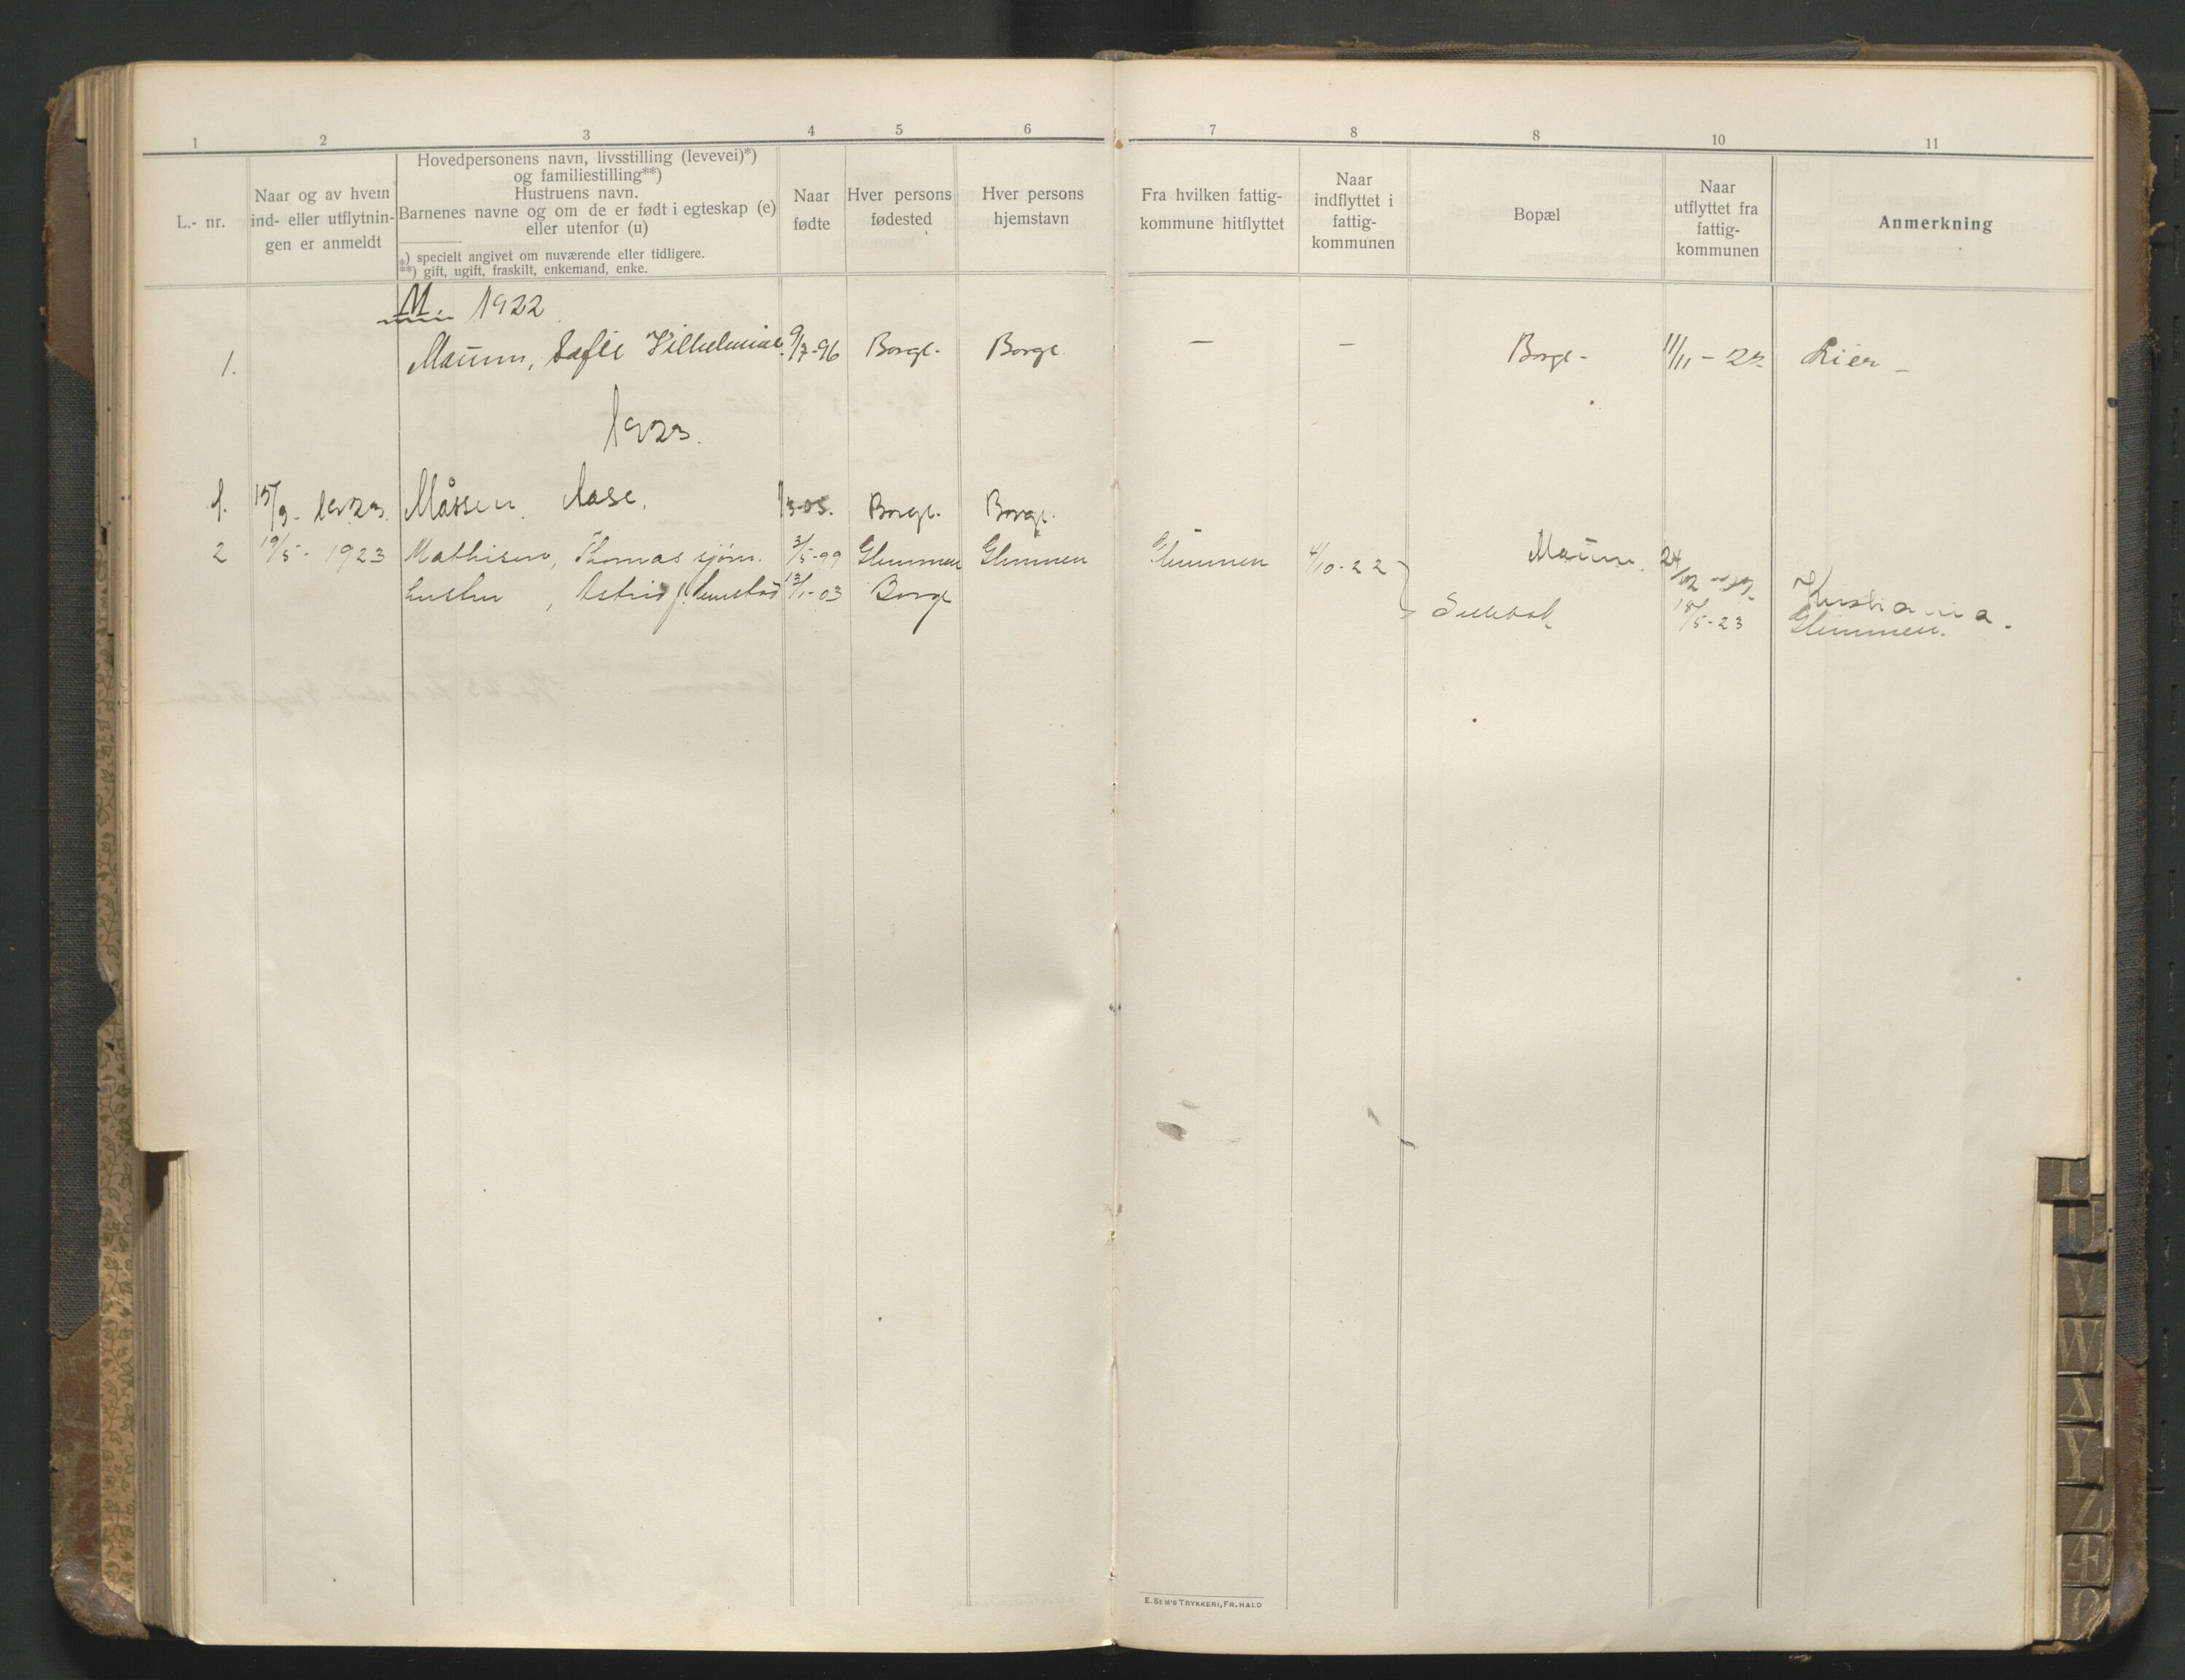 1 2 3 4 5 6 7 8 8 10 11
L.- nr.
Naar og av hvem
ind- eller utflytnin-
gen er anmeldt
Hovedpersonens navn, livsstilling (levevei)*)
og familiestilling**)
Hustruens navn.
Barnenes navne og om de er født i egteskap (e)
eller utenfor (u)
*) specielt angivet om nuværende eller tidligere.
**) gift, ugift, fraskilt, enkemand, enke.
Naar
fødte
Hver persons
fødested
Hver persons
hjemstavn
Fra hvilken fattig-
kommune hitflyttet
Naar
indflyttet i
fattig-
kommunen
Bopæl
Naar
utflyttet fra
fattig-
kommunen
Anmerkning
M. 1922
1. Maum, Sofie Vilhelmine 9/7-96 Borge. Borge. — — Borge - 11/11 - 22 Lier -
1923.
1. 15/3- 1923. Måssen, Aase. 1/3-05. Borge. Borge. Maum. 24/12 Kristiania.
2 19/5- 1923 Mathisen, Thomas sjøm. 3/5-99 Glemmen Glemmen Glemmen 4/10-22 Sellebak 18/5-23 Glemmen.
hustru, Astrid f. 13/1-03 Borge
E. SEM'S TRYKKERI, FR.HALD
T
U
V
W
X
Y
Z
Æ
Ø